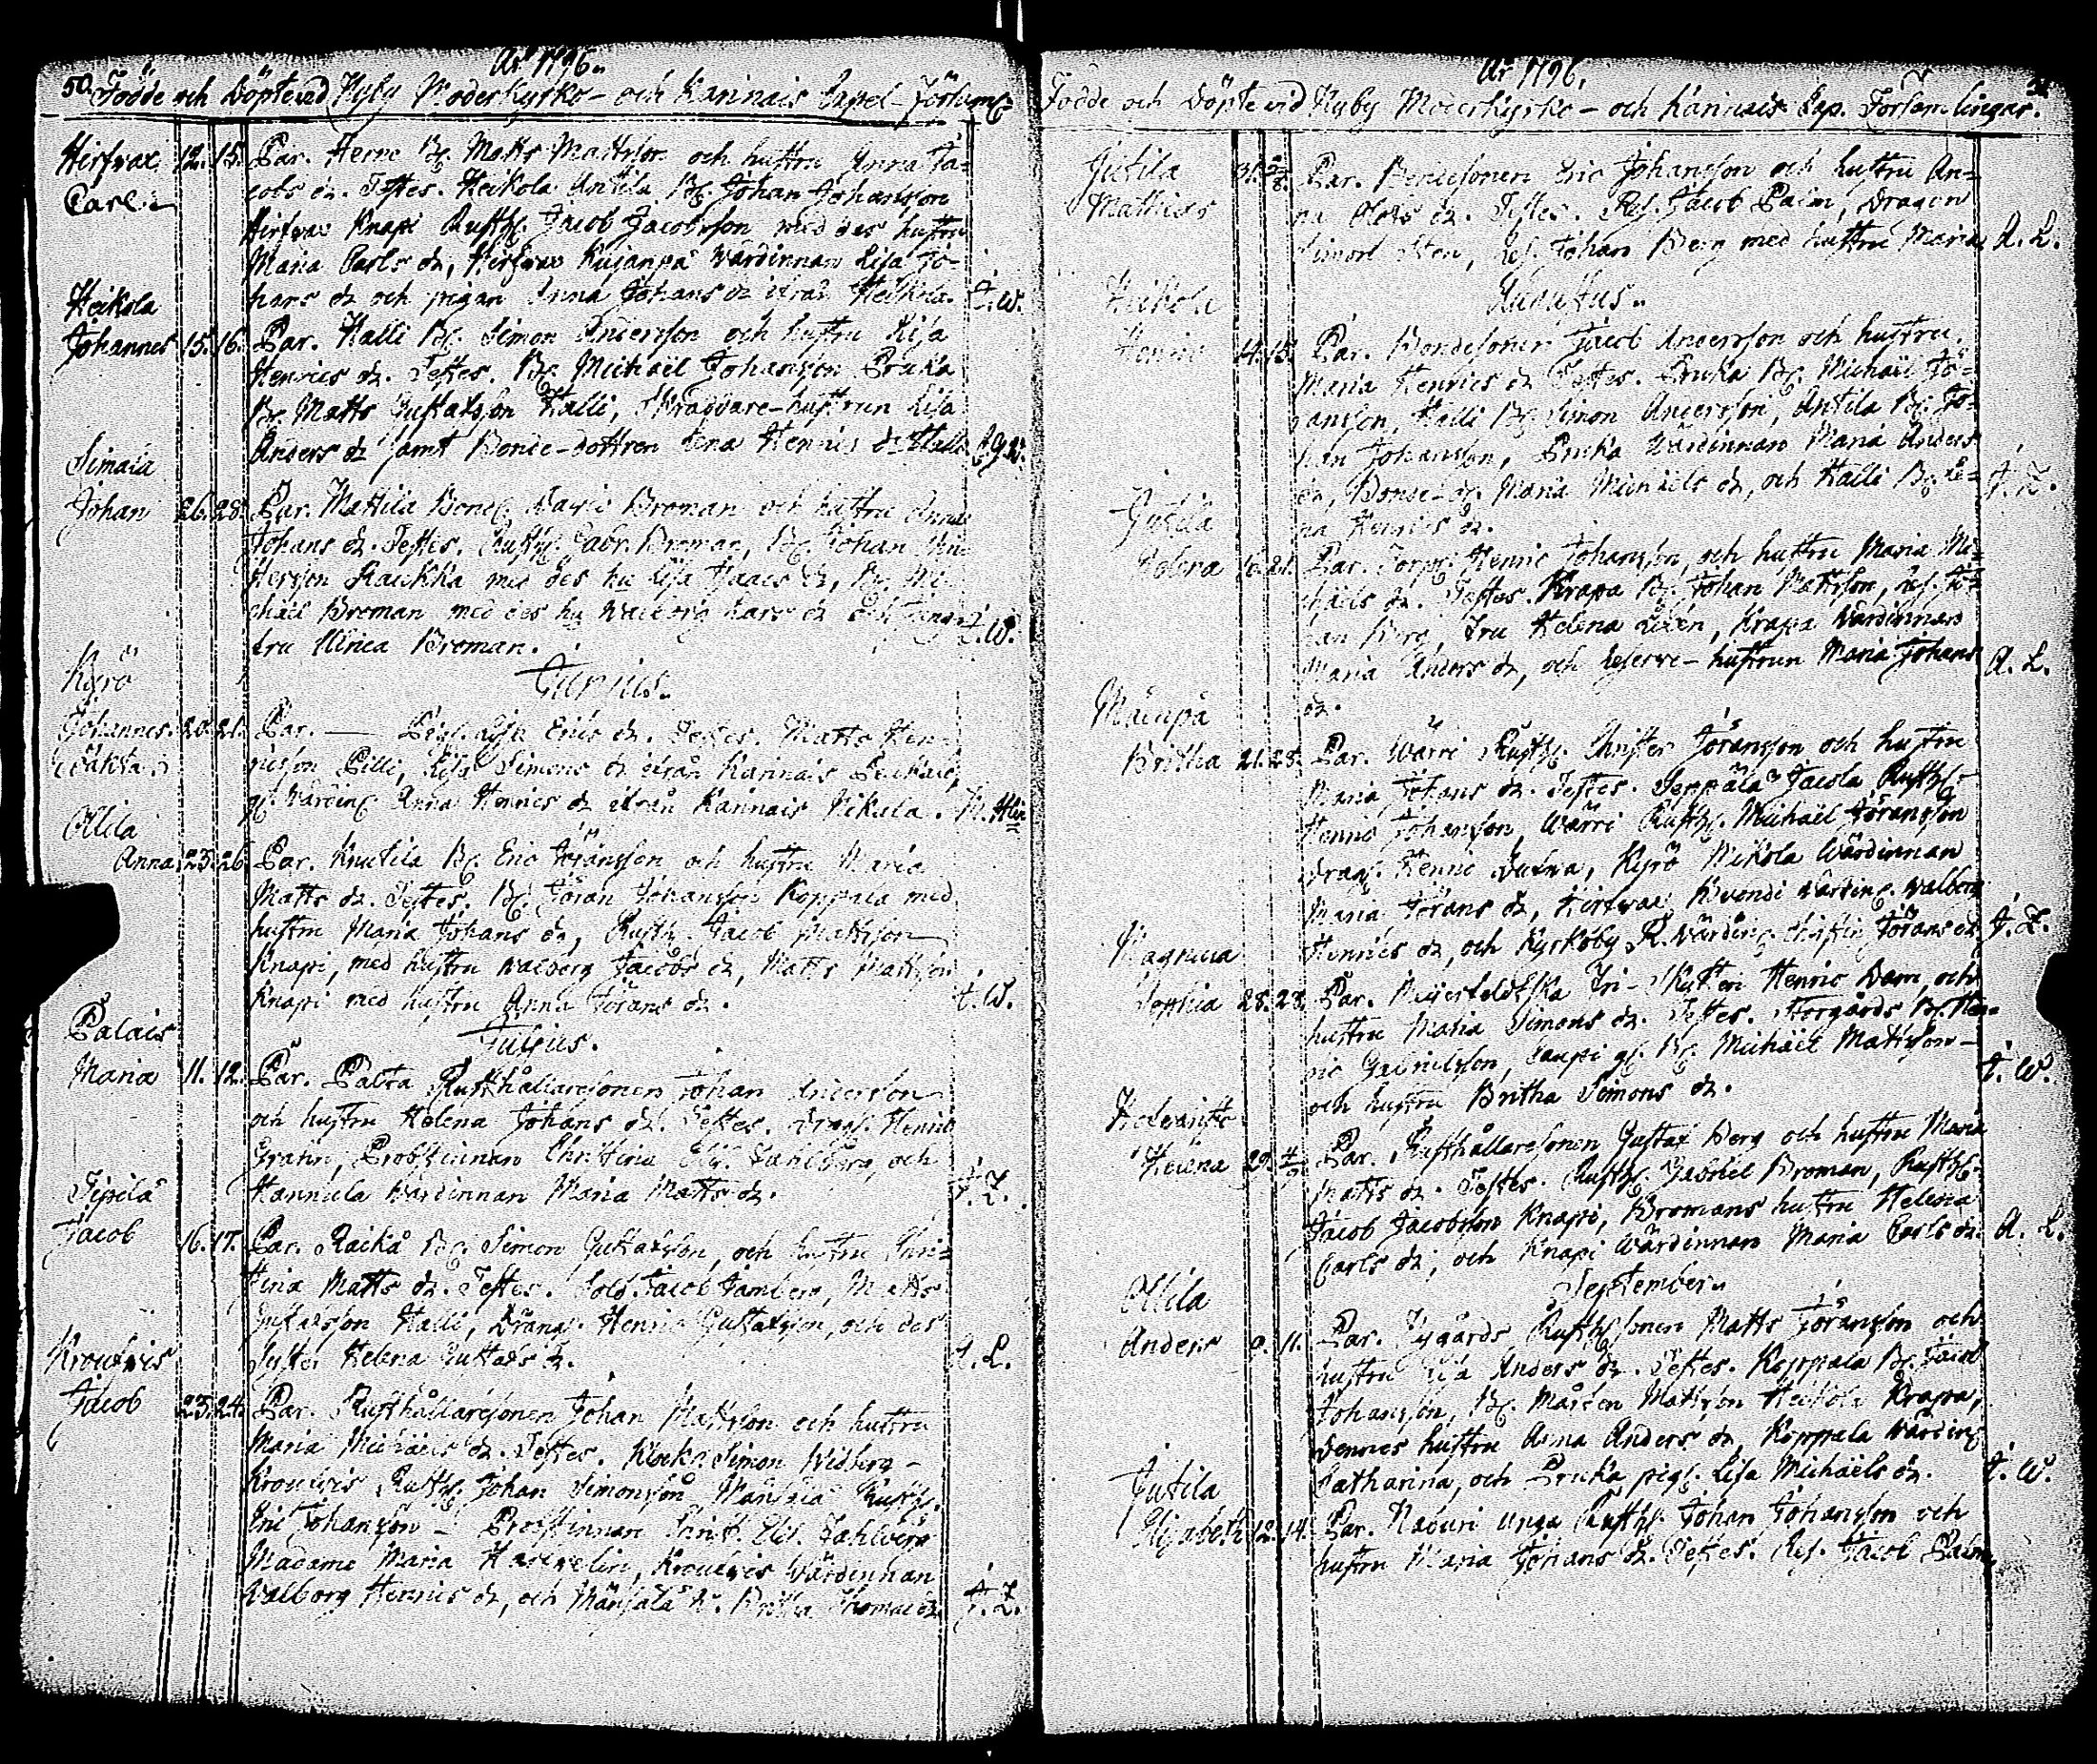 År 1796.
50. Födde och döpte vid Kyby Moderkyrko- och Karinais Capel-Förſaml:
Hirſvax 12. 15. Par. Herre Bſ. Matts Mattsſon och huſtru Anna Ja-
Carl. cobs dr. Teſtes. Heikola Antila Bſ. Johan Johansſon
Hirſvax Knapi Ruſth. Jacob Jacobsſon med des huſtru
Maria Carls dr, Hirſvax Kujanpä Wärdinnan Liſa Jo-
Heikola hans dr och pigan Anna Johans dr ifrån Heikola. J. W.
Johannes 15. 16. Par. Halli Bſ. Simon Andersſon och huſtru Liſa
Henrics dr. Teſtes. Bſ. Michaël Johansſon Pruka
Bſ. Matts Guſtafsſon Halli, Skräddare-huſtrun Liſa
Anders dr ſamt Bonde-dottren Lena Henrics dr Halli
Simala
Johan 26. 28. Par. Mattila Bond. David Broman och huſtru Anna
Johans dr. Teſtes. Ruſth. Gabr. Broman, Bſ. Johan
Raukka med des hu Liſa Isaacs dr, Bſ. Mi-
chäel Broman med des hu Walborg Lars dr
fru Ulrica Broman. J. W.
Kyrö
Junius.
Johannes. 20. 21. Par. — Pig. Liſa Erics dr. Teſtes. Matts Hen-
oäkta. ricsſon Pilli, Liſa Simons dr ifrån Karinais
gſ. Wärdin: Anna Henrics dr ifrån Karinais Nikula.
Ollila
Anna 23. 26. Par. Knutila Bſ. Eric Jöransſon och huſtru Maria
Matts dr. Teſtes. Bſ. Jöran Johansſon Koppala med
huſtru Maria Johans dr, Ruſth. Jacob Mattsſon
Knapi, med huſtru Walborg Jacobs dr, Matts Mattsſon
Knapi med huſtru Anna Jörans dr. J. W.
Palais
Julius.
Maria 11. 12. Par. Palta Ruſthållareſonen Johan Andersſon
och huſtru Helena Johans dr. Teſtes. Dräng. Henric
Gratin, Probſtinnan Chriſtina Eliſ. Fahlberg och
Sipilä Hannula Wärdinnan Maria Matts dr. J. L.
Jacob 16. 17. Par. Raikå Bſ. Simon Guſtafsſon, och huſtru Chri-
ſtina Matts dr. Teſtes. Sold. Jacob Tamberg, Matts
Guſtafsſon Halli, Dräng. Henric Guſtafsſon, och des
Krouvis Syſter Helena Guſtafs dr. A. L.
Jacob 23. 24. Par. Ruſthållareſonen Johan Mattsſon och huſtru
Maria Michaels dr. Teſtes. Klocka. Simon Widberg
Krouvis Ruſth. Johan Simonsſon, Mänſälä Ruſth.
Eric Johansſon - Probſtinnan Chriſt. Eliſ. Fahlberg
Madame Maria Krouvis Wärdinnan
Walborg Henrics dr, och Mänſälä W. Britha Thomae dr. J. L.
År 1796.
Födde och döpte vid Kyby Moderkyrko- och Karinais Cap. Förſamlingar.
Jutila 31. 2/8. Par. Bondeſonen Eric Johansſon och huſtru An-
Mathias na Olofs dr. Teſtes. Reſ. Jacob Palm, Dragon
Simon Sten, Reſ. Johan Berg med huſtru Maria A. L.
Heikola
Auguſtus.
Henric 14. 15. Par. Bondeſonen Jacob Andersſon och huſtru
Maria Henrics dr Teſtes. Pruka Bſ. Michaël Jo-
hansſon, Halli Bſ. Simon Andersſon, Antila Bſ. Jo-
han Johansſon, Pruka Wärdinnan Maria Anders
dr, Bonde-dr. Maria Michaels dr, och Halli Bſ. Le-
Jutila na Henrics dr.
Helena 21. Par. Torp. Henric Johansſon, och huſtru Maria Mi-
chaels dr. Teſtes. Krapa Bſ. Johan Mattsſon, Reſ. Jo-
han Berg, Fru Helena Krapa Wärdinnan
Maria Anders dr, och Reſerve-huſtrun Maria Johans A. L.
Mäenpä dr.
Britha 21. 25. Par. Wärri Ruſth. Chriſter Jöransſon och huſtru
Maria Johans dr. Teſtes. Seppälä Jacola Ruſth.
Henric Johansſon, Wärri Ruſth. Michaël Jöransſon
Drag. Henric Kyrö Nikola Wärdinnan
Maria Jörans dr, Hirſvax Wärdin: Walborg
Magnula Henrics dr, och Kyrkoby R. Wärdin: Chriſtin Jörans dr J. L.
Sophia 28. 28. Par. Meijerfeldtſka Fri-Skytten Henric Dam, och
huſtru Maria Simons dr. Teſtes. Storgårds Bſ. Hen-
ric Gabrielsſon, gſ. Bſ. Michaël Mattsſon
och huſtru Britha Simons dr. J. W.
Helena 29. 4/9. Par. Ruſthållareſonen Guſtaf Berg och huſtru Maria
Matts dr. Teſtes. Ruſth. Gabriel Broman, Ruſth.
Jacob Jacobsſon Knapi, Bromans huſtru Helena
Carls dr, och Knapi Wärdinnan Maria Carls dr. A. L.
Ollila
September.
Anders 9. 11. Par. Ruſth. ſonen Matts Jöransſon och
huſtru Liſa Anders dr. Teſtes. Koppala Bſ. Jacob
Johansſon, Bſ. Mårten Mattsſon Heikola Krapa,
Dennes huſtru Anna Anders dr, Koppala Wärdin:
Jutila Catharina, och Pruka pig. Liſa Michaels dr. J. W.
Eliſabeth 12. 14. Par. Naburi unga Ruſth. Johan Johansſon och
huſtru Maria Johans dr. Teſtes. Reſ. Jacob Palm,